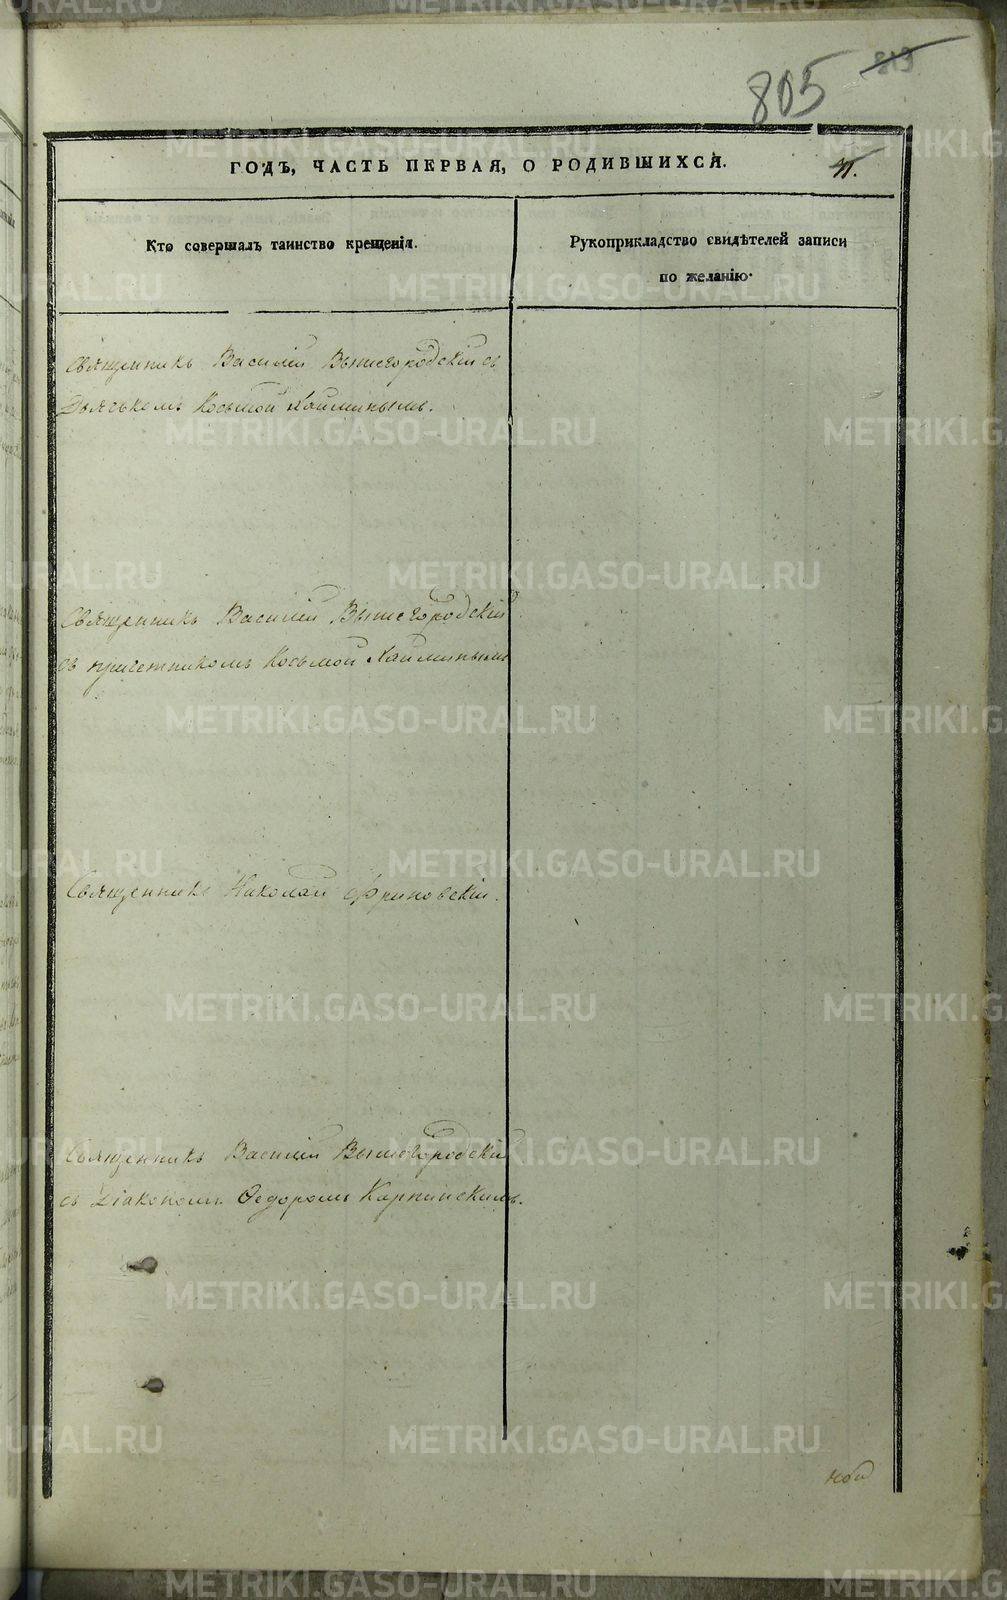 813
805
ГОДЪ, ЧАСТЬ ПЕРВАЯ, О РОДИВШИХСЯ.
Кто совершалъ таинство крещенія.
Рукоприкладство свидѣтелей записи
по желанію.
Священникъ Василій Вышегородскій съ
Дьячькомъ Косьмой Хайминымъ.
Священникъ Василій Вышегородскій
съ причетникомъ Косьмой Хайминымъ
Священникъ Николай Фриновскій.
Священникъ Василій Вышегородскій
съ Діакономъ Ѳедоромъ Карпинскимъ.
METRIKI.GASO-URAL.RU